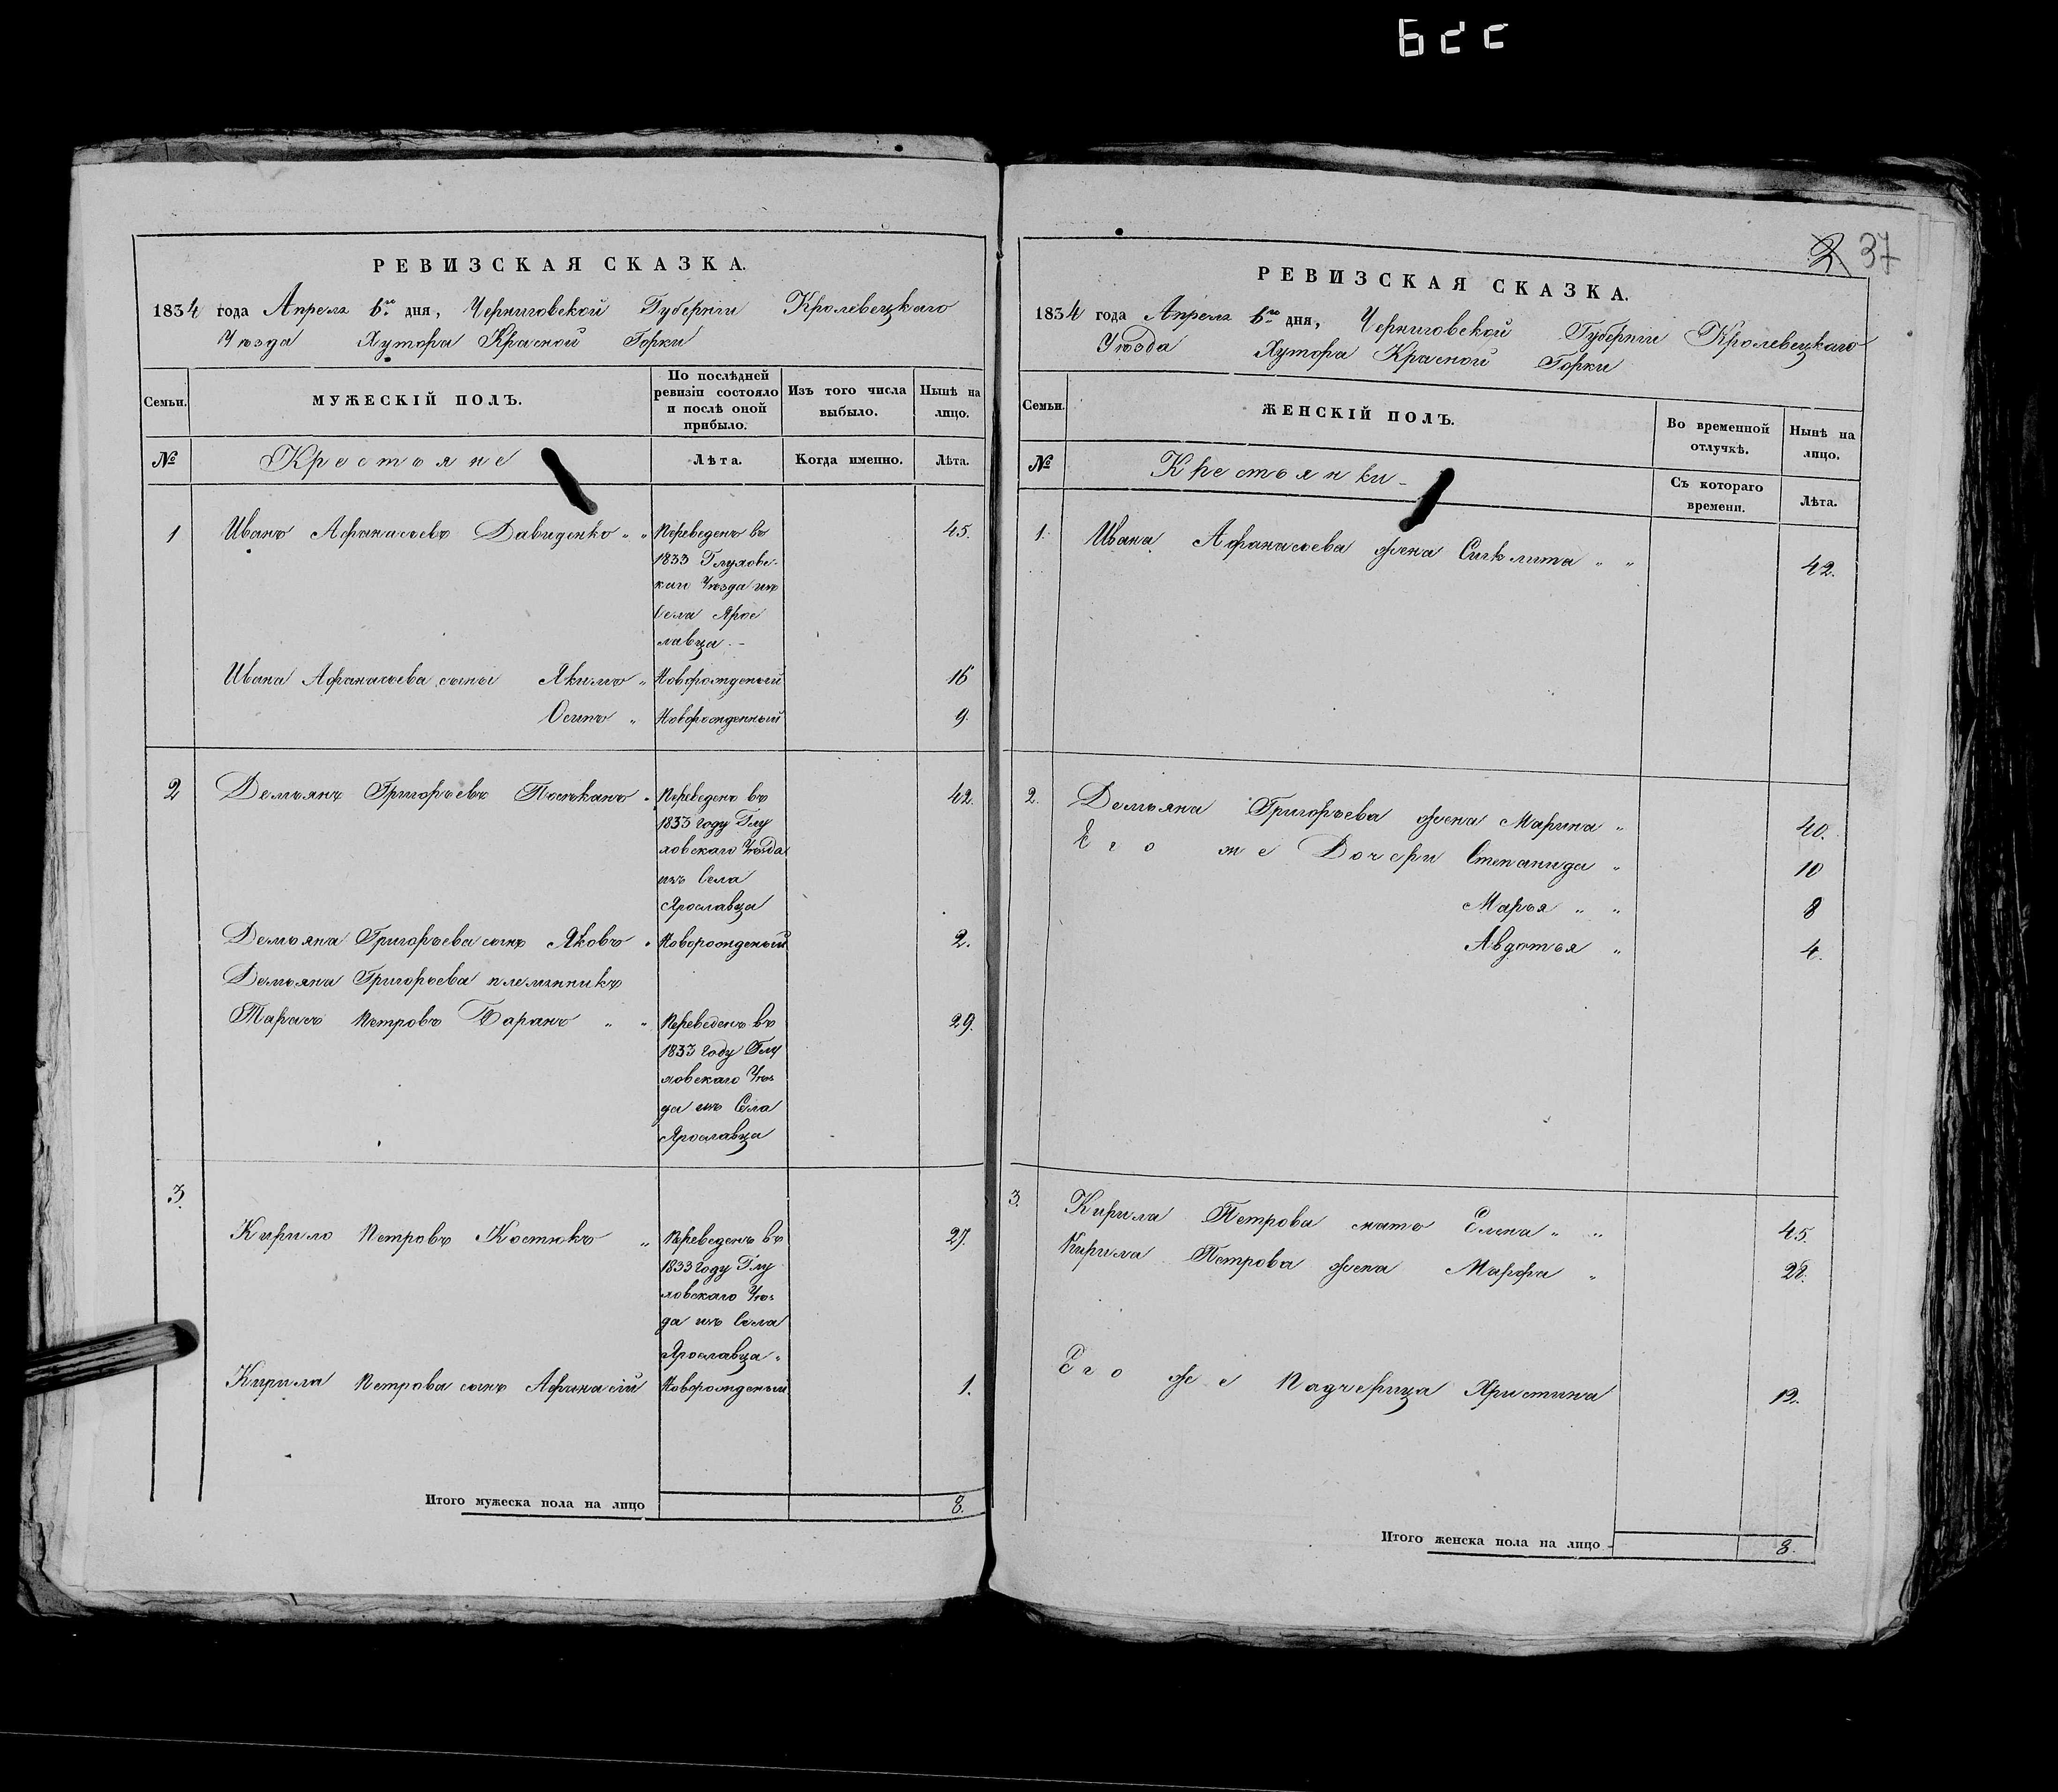 622
РЕВИЗСКАЯ СКАЗКА.
1834 года Апреля 6го дня, Черниговской Губерніи Кролевецкаго
Уѣзда Хутора Красной Горки
Семьи.
МУЖЕСКІЙ ПОЛЪ.
По послѣдней ревизіи состояло и послѣ оной прибыло.
Изъ того числа выбыло.
Нынѣ на лицо.
№
Крестьяне
Лѣта.
Когда именно.
Лѣта.
1 Иванъ Афанасьевъ Давиденко „ „ Переведенъ въ 45.
1833 Глуховс-
каго Уѣзда изъ
Села Ярос
лавца. -
Ивана Афанасьева сыны Якимъ „ Новорожденый 16
Осипъ „ Новорожденный 9.
2 Демьянъ Григорьевъ „ Переведенъ въ 42.
1833 году Глу
ховскаго Уѣзда
изъ Села
Ярославца
Демьяна Григорьева сынъ Яковъ „ Новорожденый 2.
Демьяна Григорьева племянникъ
Тарасъ Петровъ Баранъ „ „ Переведенъ въ 29.
1833 году Глу
ховскаго Уѣз
да изъ Села
Ярославца
3.
Кирило Петровъ Костюкъ „ Переведенъ въ 27.
1833 году Глу
ховскаго Уѣз
да изъ Села
Ярославца „
Кирила Петрова сынъ Афанасій Новорожденый 1.
Итого мужеска пола на лицо 8.
2 37
РЕВИЗСКАЯ СКАЗКА.
1834 года Апреля 6го дня, Черниговской Губерніи Кролевецкаго
Уѣзда Хутора Красной Горки
Семьи.
ЖЕНСКІЙ ПОЛЪ.
Во временной отлучкѣ.
Нынѣ на лицо.
№
Крестьянки -
Съ котораго времени.
Лѣта.
1. Ивана Афанасьева жена Сиклита „ „ 42.
2. Демьяна Григорьева жена Марина „ 40.
Его же Дочери Степанида „ 10
Марья „ „ 8
Авдотья „ 4.
3. Кирила Петрова мать Елена „ „ 45.
Кирила Петрова жена Марфа „ 28.
Его же Падчерица Христина 12.
Итого женска пола на лицо 8.